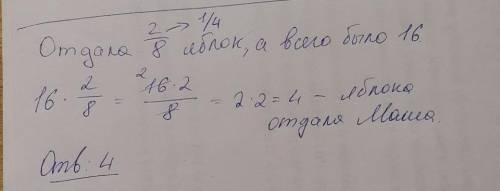 Отдала 2/8 → 1/4 яблок, а всего было 16
16 · 2/8 = 16·2/8 = 2·2 = 4 – яблока
отдала Маша.
Отв: 4